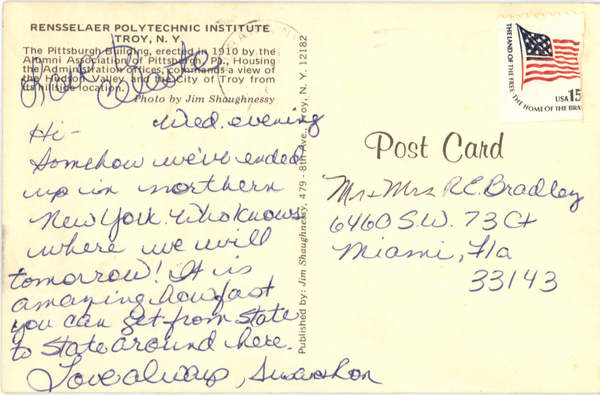 RENSSELAER POLYTECHNIC INSTITUTE
TROY, N. Y.
The Pittsburgh Building, erected in 1910 by the
Alumni Association of Pittsburgh, Pa., Housing
the Administration offices, commands a view of
the Hudson Valley and the City of Troy from
its hillside location.
Photo by Jim Shaughnessy
Wed. evening
Hi-
Somehow we've ended
up in northern
New York. Who knows
where we will
tomorrow! It is
amazing how fast
you can get from state
to state around here.
Love always,
Published by: Jim Shaughnessy, 479 - 8th Ave., Troy, N. Y. 12182
THE LAND OF THE FREE
THE HOME OF THE BRA
USA 15
Post Card
Mr + Mrs R.E. Bradley
6460 S.W. 73 Ct
Miami, Fla
33143